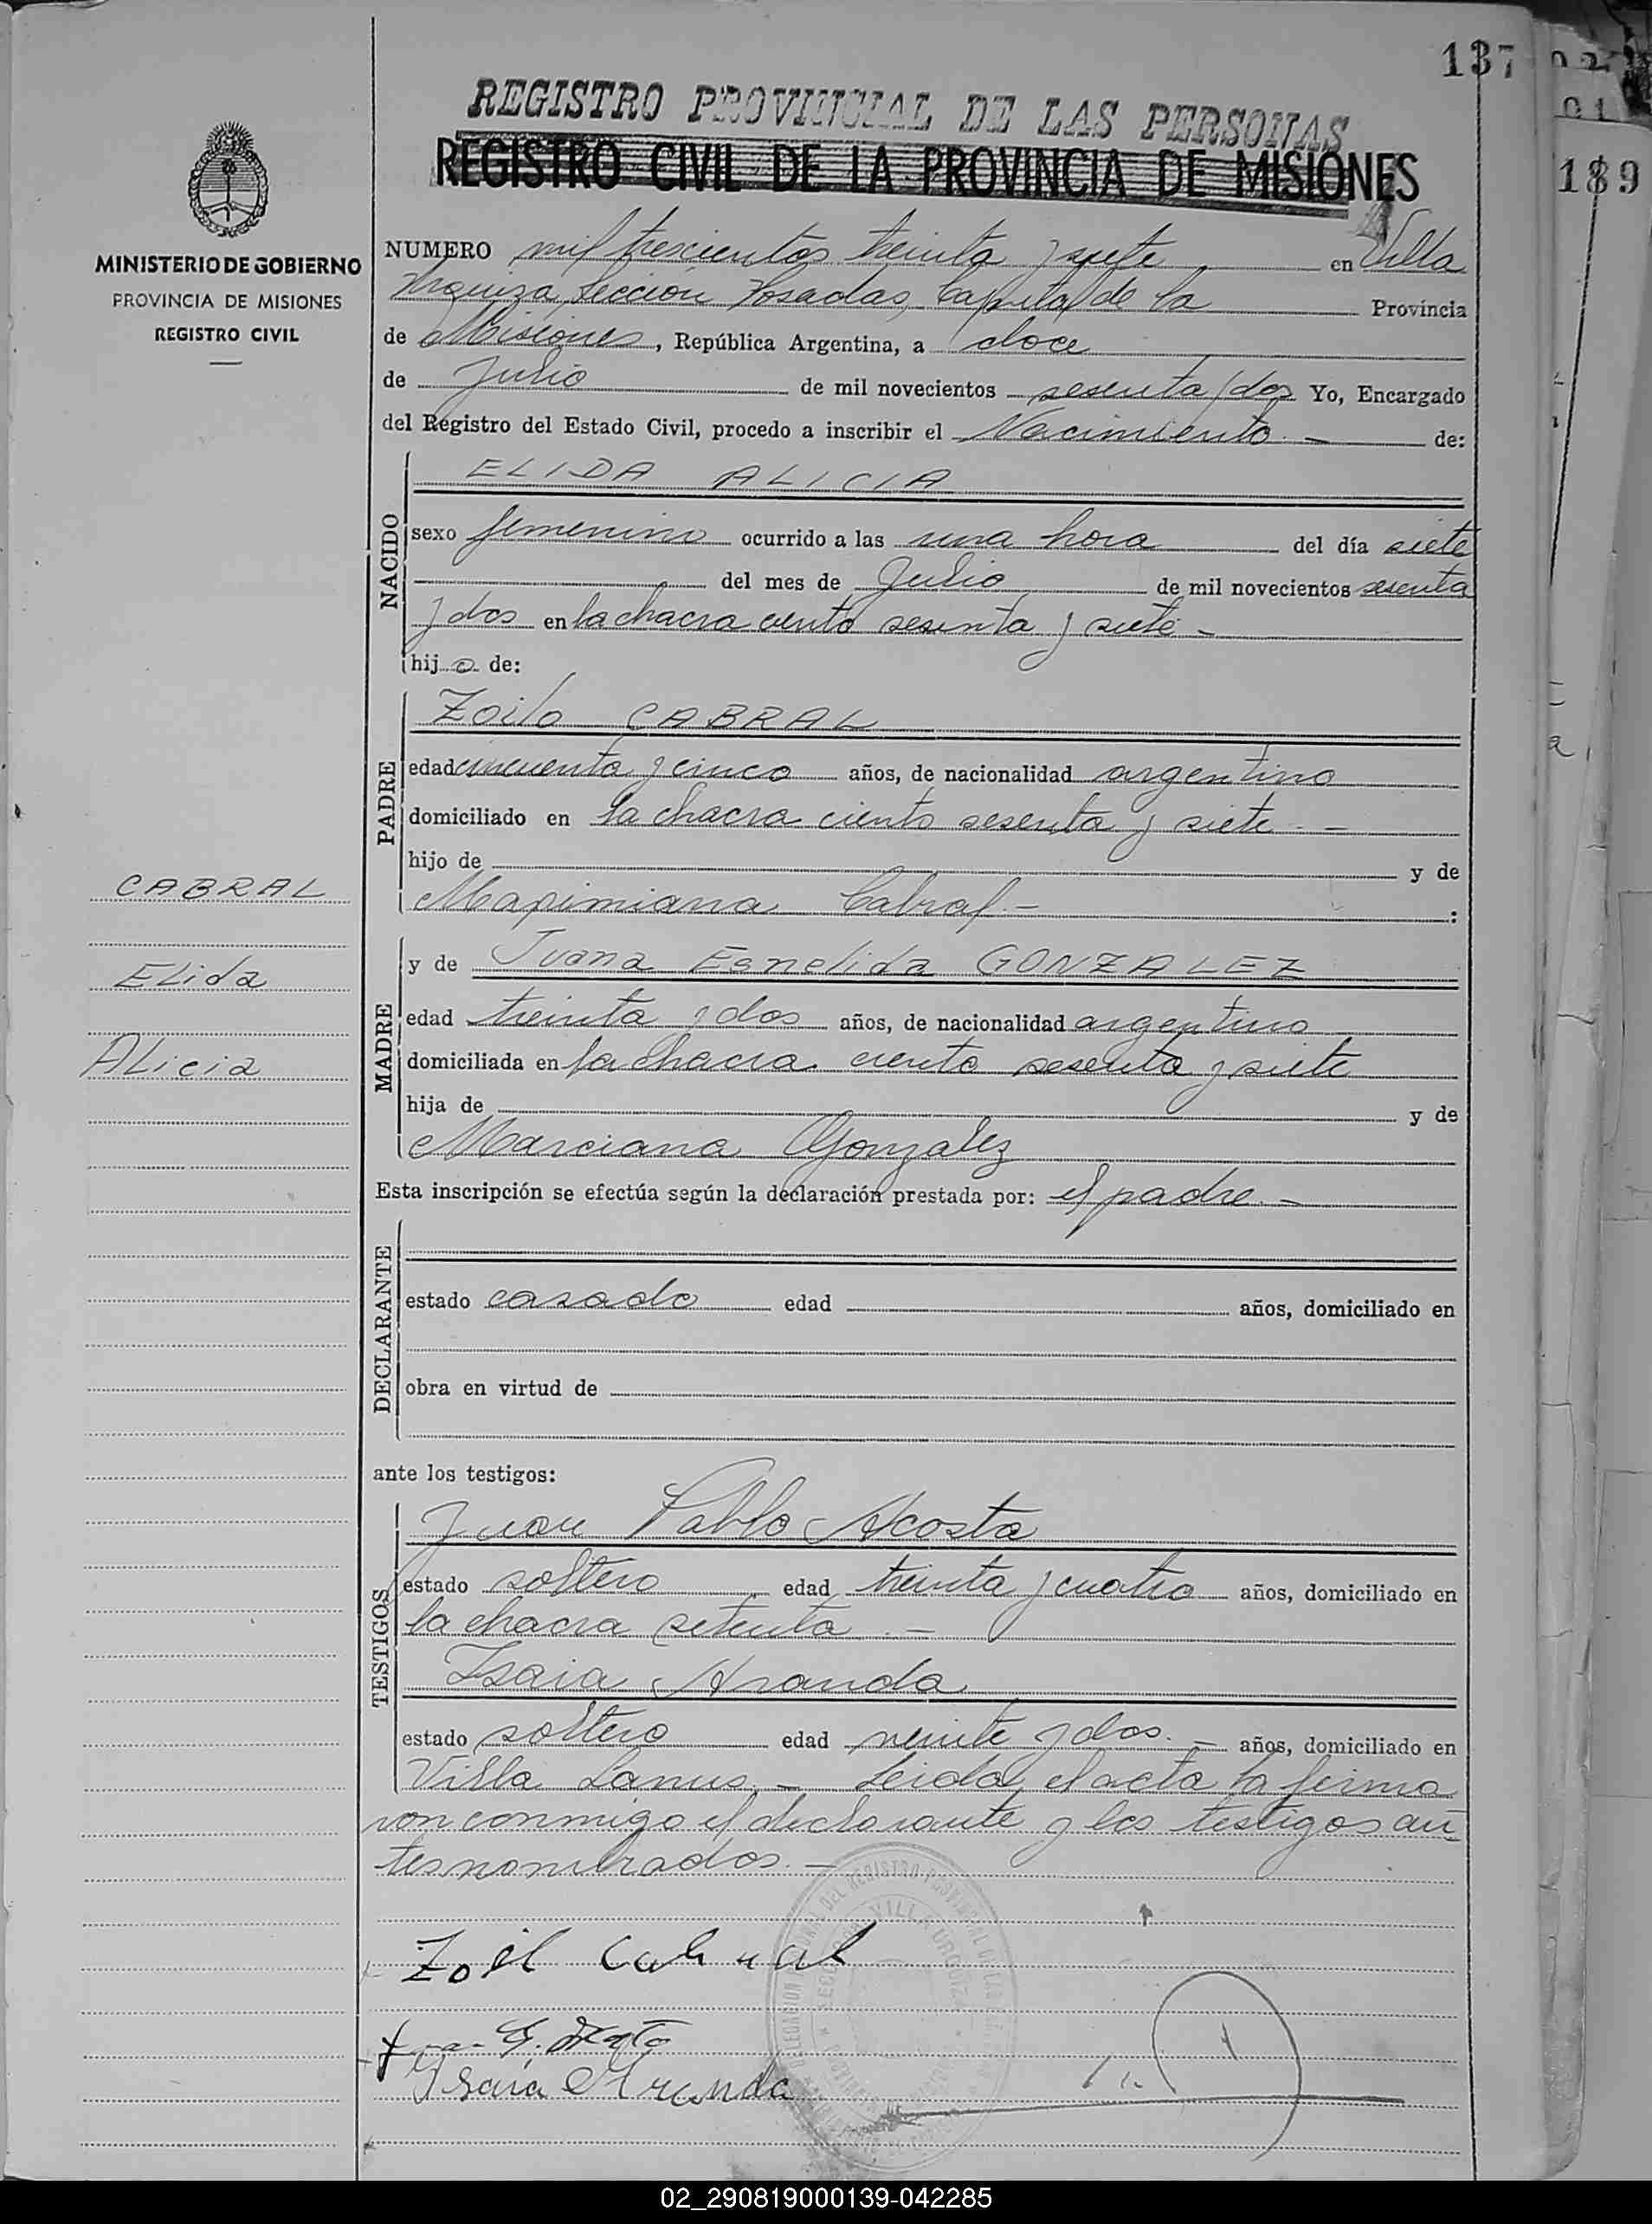 137
189
REGISTRO PROVINCIAL DE LAS PERSONAS
REGISTRO CIVIL DE LA PROVINCIA DE MISIONES
MINISTERIO DE GOBIERNO
PROVINCIA DE MISIONES
REGISTRO CIVIL
NUMERO mil trescientos treinta y siete en Villa
Urquiza, Sección Posadas, Capital de la Provincia
de Misiones, República Argentina, a doce
de Julio de mil novecientos sesenta y dos Yo, Encargado
del Registro del Estado Civil, procedo a inscribir el Nacimiento.- de:
NACIDO
ELIDA ALICIA
sexo femenino ocurrido a las una hora del día siete
del mes de Julio de mil novecientos sesenta
y dos en la chacra ciento sesenta y siete -
hij a de:
PADRE
Zoilo CABRAL
edad cincuenta y cinco años, de nacionalidad argentino
domiciliado en la chacra ciento sesenta y siete.-
hijo de y de
Maximiana Cabral.- :
CABRAL
Elida
Alicia
MADRE
y de Juana Esnelida GONZALEZ
edad treinta y dos años, de nacionalidad argentino
domiciliada en la chacra ciento sesenta y siete
hija de y de
Marciana Gonzalez
Esta inscripción se efectúa según la declaración prestada por: el padre.-
DECLARANTE
estado casado edad años, domiciliado en
obra en virtud de
ante los testigos:
TESTIGOS
Juan Pablo Acosta
estado soltero edad treinta y cuatro años, domiciliado en
la chacra setenta.-
Isaia Aranda
estado soltero edad veinte y dos.- años, domiciliado en
Villa Lanus.- Leida el acta la firma
ron conmigo el declarante y los testigos an
tesnombrados.-
Zoil Cabral
Isaia Arunda
02_290819000139-042285